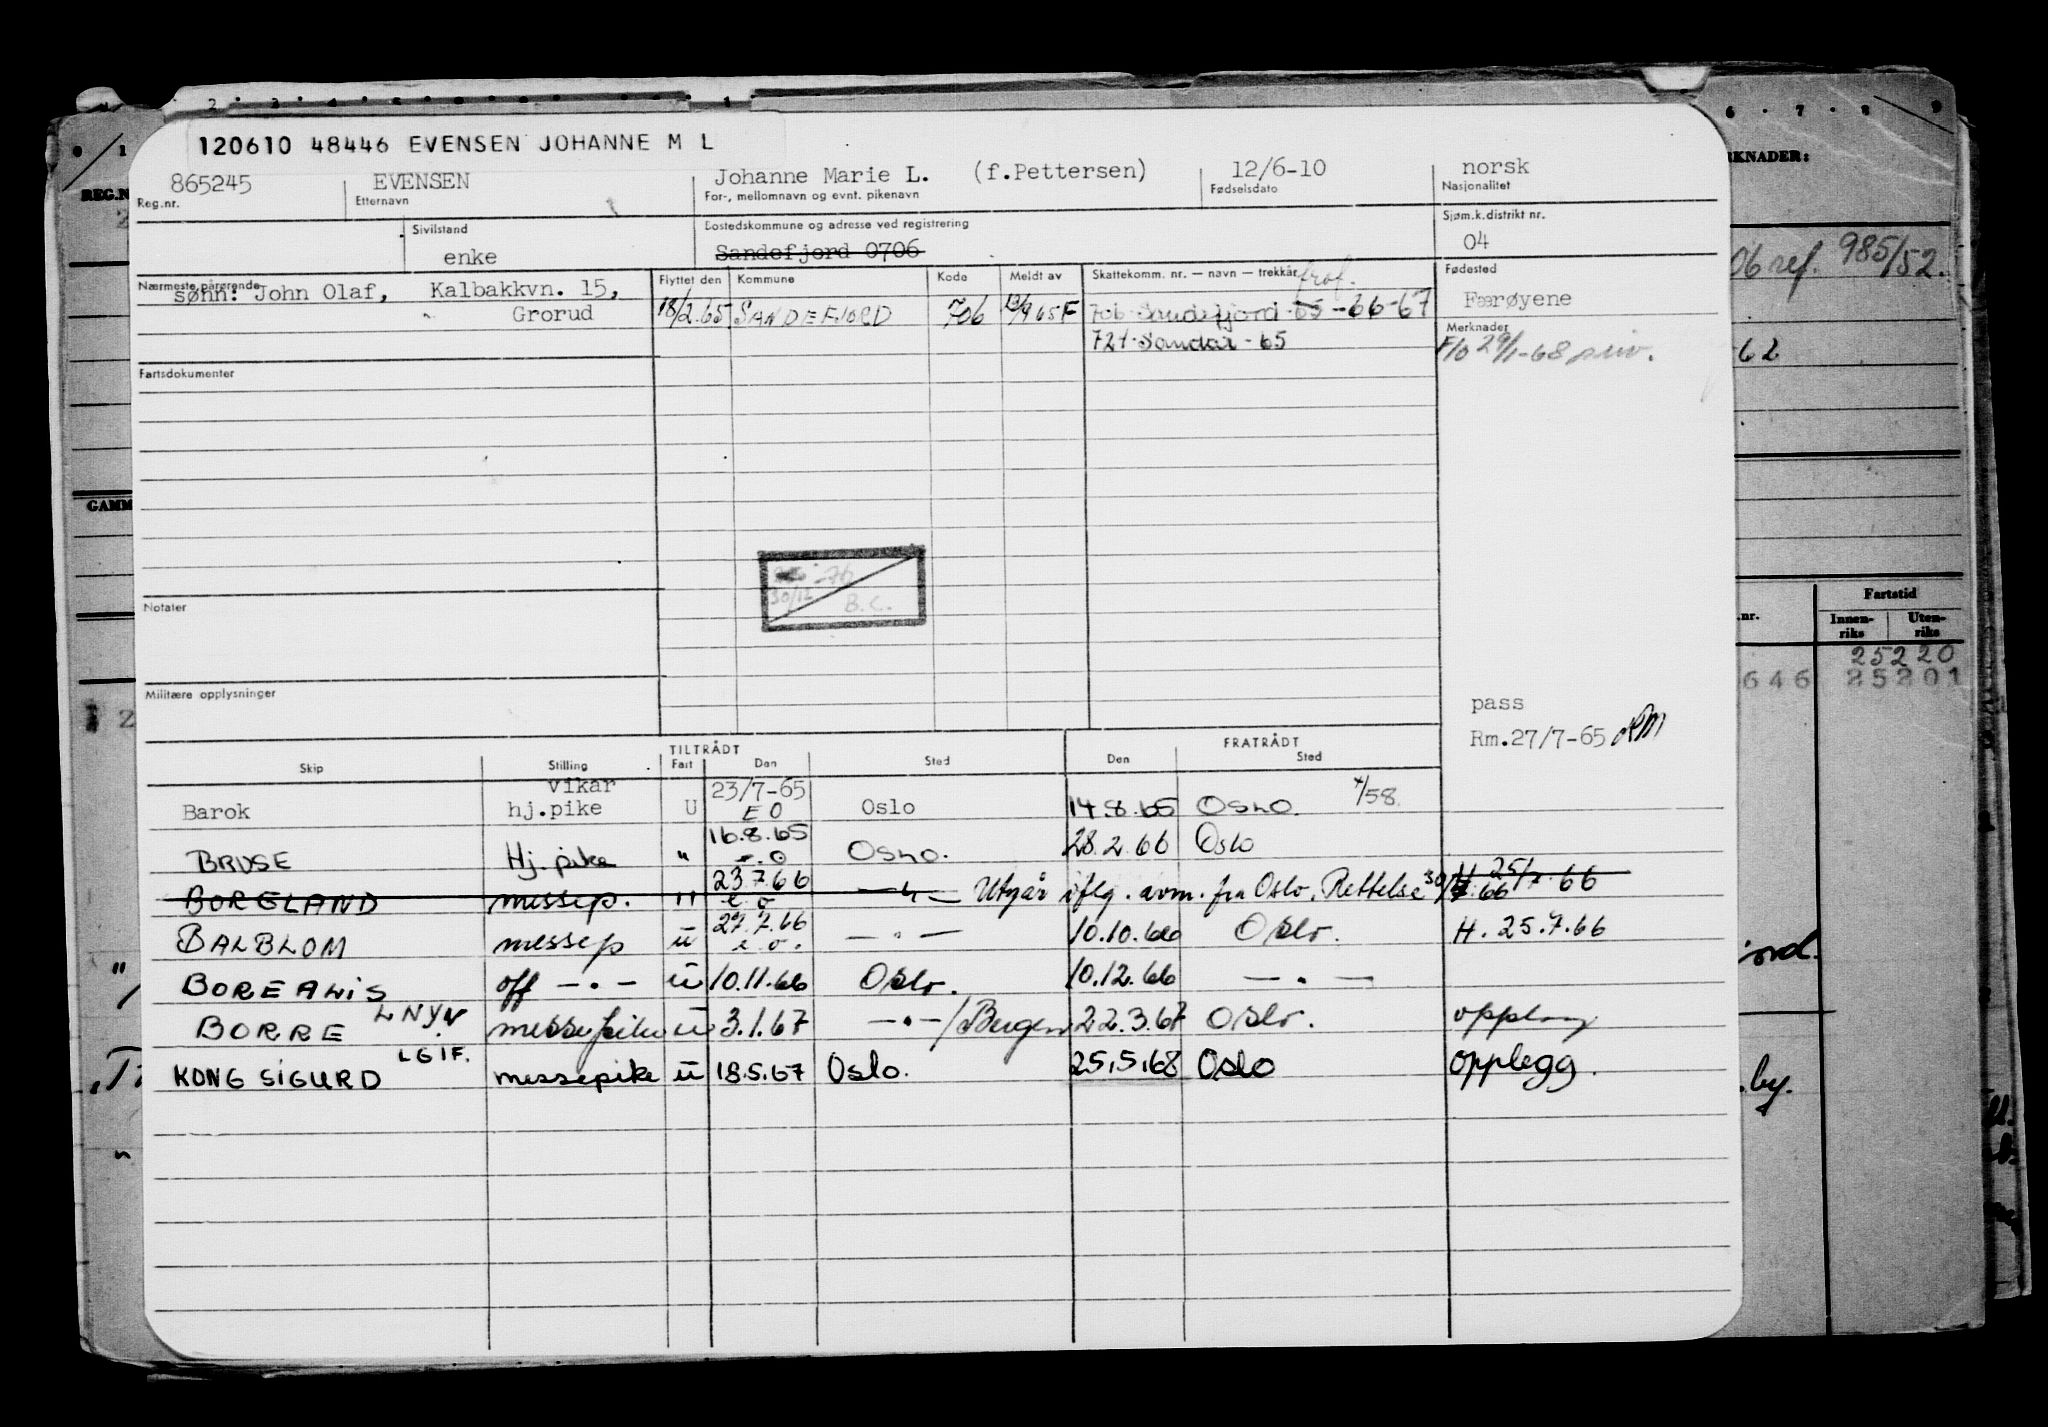 120610 48446 EVENSEN JOHANNE M L
865245 EVENSEN Johanne Marie L. (f.Pettersen) 12/6-10 norsk
Reg.nr. Etternavn For-, mellomnavn og evnt. pikenavn Fødselsdato Nasjonalitet
Sivilstand Bostedskommune og adresse ved registrering Sjøm.k.distrikt nr.
enke Sandefjord 0706 04
Nærmeste pårørende Flyttet den Kommune Kode Meldt av Skattekomm. nr. — navn — trekkår Fødested
sønn: John Olaf, Kalbakkvn. 15, Færøyene
Grorud 18/2.65 SANDEFJORD 706 706 Sandefjord -65 -66-67
Merknader
721 Sandar - 65 F/O 29/1-68
Fartsdokumenter
Notater
30/12 B.C.
Militære opplysninger
pass
Rm.27/7-65 RM
TILTRÅDT FRATRÅDT
Skip Stilling Fart Den Sted Den Sted
vikar 23/7-65
Barok hj.pike U EO Oslo 14.8.65 OSLO. 4/58
16.8.65
BRUSE Hj.pike " OSLO. 28.2.66 Oslo
23.7.66
BORGLAND messep. " e o Utgår iflg. avm. fra Oslo, Rettelse H 25/7.66
27.7.66
BALBLOM messep u e.o. — " — 10.10.66 Oslo. H. 25.7.66
BOREALIS off — " — u 10.11.66 Oslo. 10.12.66 — " —
LNYN
BORRE messepike u 3.1.67 — " —/Bergen 22.3.67 Oslo.
LGIF.
KONG SIGURD messepike u 18.5.67 Oslo. 25.5.68 Oslo opplegg.
REG.N
GAMM
RKNADER:
06 ref. 985/52.
62
Fartstid
.nr. Innen-riks Uten-riks
25220
646 25201
ord.
by.